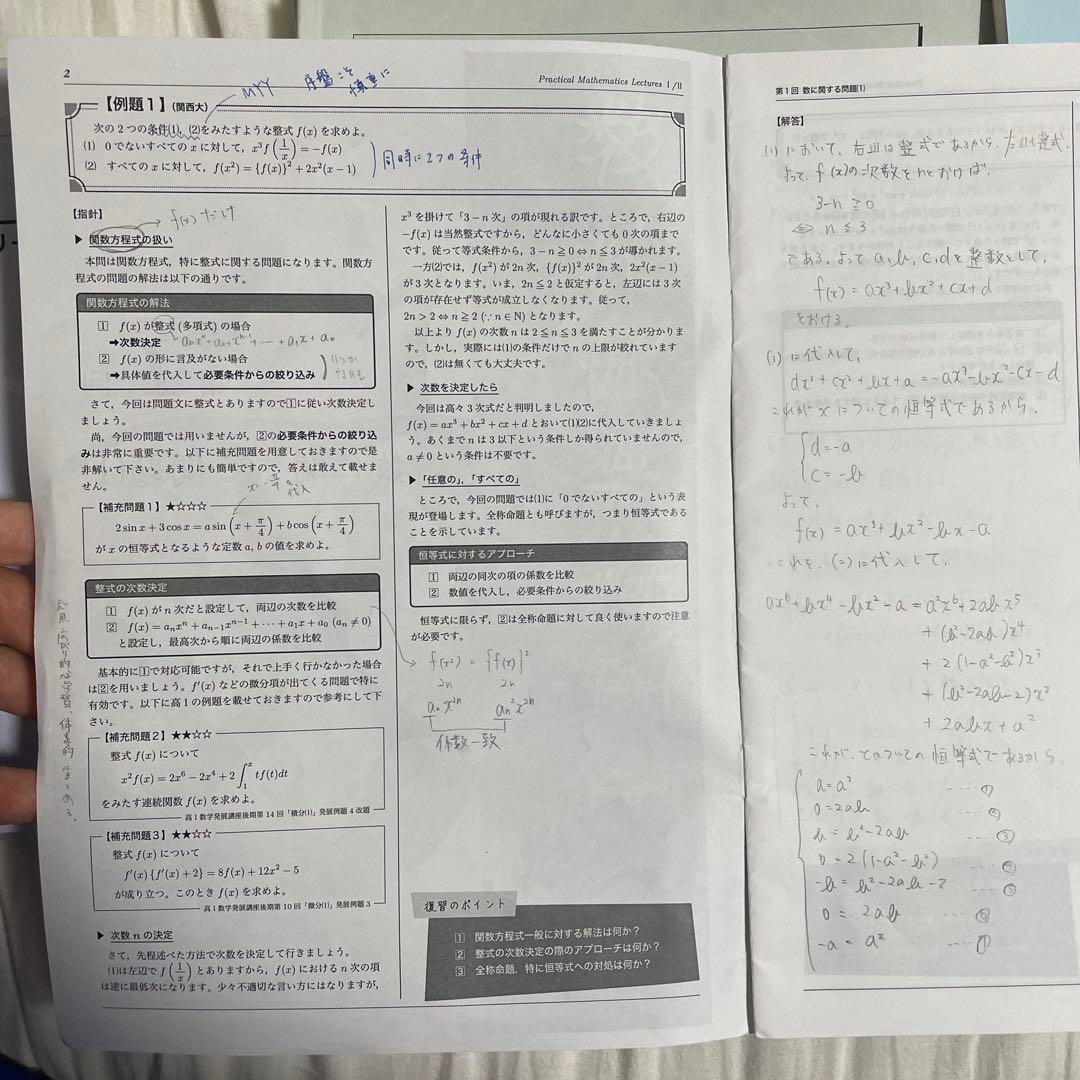 2
MYY 序盤こそ
慎重に
Practical Mathematics Lectures I/II
【例題1】(関西大)
次の2つの条件(1), (2)をみたすような整式 f(x) を求めよ。
(1) 0でないすべての x に対して, x³f(1/x) = −f(x)
(2) すべての x に対して, f(x²) = {f(x)}² + 2x²(x−1)
同時に2つの条件
【指針】
f(x) だけ
▶ 関数方程式の扱い
本問は関数方程式, 特に整式に関する問題になります。関数方
程式の問題の解法は以下の通りです。
関数方程式の解法
1 f(x) が整式 (多項式) の場合
➡次数決定
aₙxⁿ+aₙ₋₁xⁿ⁻¹+…+a₁x+a₀
2 f(x) の形に言及がない場合
➡具体値を代入して必要条件からの絞り込み
さて, 今回は問題文に整式とありますので1に従い次数決定し
ましょう。
尚, 今回の問題では用いませんが, 2の必要条件からの絞り込
みは非常に重要です。以下に補充問題を用意しておきますので是
非解いて下さい。あまりにも簡単ですので, 答えは敢えて載せま
せん。
代入
【補充問題1】★☆☆☆
2 sin x + 3 cos x = a sin(x + π/4) + b cos(x + π/4)
が x の恒等式となるような定数 a, b の値を求めよ。
整式の次数決定
1 f(x) が n 次だと設定して, 両辺の次数を比較
2 f(x) = aₙxⁿ + aₙ₋₁xⁿ⁻¹ + ⋯ + a₁x + a₀ (aₙ ≠ 0)
と設定し, 最高次から順に両辺の係数を比較
基本的に1で対応可能ですが, それで上手く行かなかった場合
は2を用いましょう。f′(x) などの微分項が出てくる問題で特に
有効です。以下に高1の例題を載せておきますので参考にして下
さい。
【補充問題2】★★☆☆
整式 f(x) について
x²f(x) = 2x⁶ − 2x⁴ + 2∫₁ˣ tf(t)dt
をみたす連続関数 f(x) を求めよ。
高1数学発展講座後期第14回「積分(1)」発展例題4改題
【補充問題3】★★☆☆
整式 f(x) について
f′(x){f′(x) + 2} = 8f(x) + 12x² − 5
が成り立つ。このとき f(x) を求めよ。
高1数学発展講座後期第10回「微分(1)」発展例題3
▶ 次数 n の決定
さて, 先程述べた方法で次数を決定して行きましょう。
(1)は左辺で f(1/x) とありますから, f(x) における n 次の項
は逆に最低次になります。少々不適切な言い方にはなりますが,
x³ を掛けて「3−n次」の項が現れる訳です。ところで, 右辺の
−f(x) は当然整式ですから, どんなに小さくても 0 次の項まで
です。従って等式条件から, 3−n ≧ 0 ⇔ n ≦ 3 が導かれます。
一方(2)では, f(x²) が 2n 次, {f(x)}² が 2n 次, 2x²(x−1)
が 3 次となります。いま, 2n ≦ 2 と仮定すると, 左辺には 3 次
の項が存在せず等式が成立しなくなります。従って,
2n > 2 ⇔ n ≧ 2 (∵ n ∈ N) となります。
以上より f(x) の次数 n は 2 ≦ n ≦ 3 を満たすことが分かりま
す。しかし, 実際には(1)の条件だけで n の上限が絞れています
ので, (2)は無くても大丈夫です。
▶ 次数を決定したら
今回は高々3次式だと判明しましたので,
f(x) = ax³ + bx² + cx + d とおいて(1)(2)に代入していきましょ
う。あくまで n は 3 以下という条件しか得られていませんので,
a ≠ 0 という条件は不要です。
▶ 「任意の」,「すべての」
ところで, 今回の問題では(1)に「0でないすべての」という表
現が登場します。全称命題とも呼びますが, つまり恒等式である
ことを示しています。
恒等式に対するアプローチ
1 両辺の同次の項の係数を比較
2 数値を代入し, 必要条件からの絞り込み
恒等式に限らず, 2は全称命題に対して良く使いますので注意
が必要です。
f(x²) = {f(x)}²
2n 2n
aₙx²ⁿ aₙ²x²ⁿ
係数一致
復習のポイント
1 関数方程式一般に対する解法は何か？
2 整式の次数決定の際のアプローチは何か？
3 全称命題, 特に恒等式への対処は何か？
第1回 数に関する問題(1)
【解答】
(1) において, 右辺は整式であるから, 左辺も整式.
よって, f(x)の次数をnとおけば,
3−n ≧ 0
⇔ n ≦ 3
である. よって, a, b, c, dを整数として,
f(x) = ax³+bx²+cx+d
とおける.
(1) に代入して,
dx³+cx²+bx+a = −ax³−bx²−cx−d
これが x についての恒等式であるから,
d=−a
c=−b
よって,
f(x) = ax³+bx²−bx−a
これを, (2)に代入して,
ax⁶+bx⁴−bx²−a = a²x⁶+2abx⁵
+(b²−2ab)x⁴
+2(1−a²−b²)x³
+(b²−2ab−2)x²
+2abx+a²
これが, xについての恒等式であるから,
a=a² …①
0=2ab …②
b=b²−2ab …③
0=2(1−a²−b²) …④
−b=b²−2ab−2 …⑤
0=2ab …⑥
−a=a² …⑦